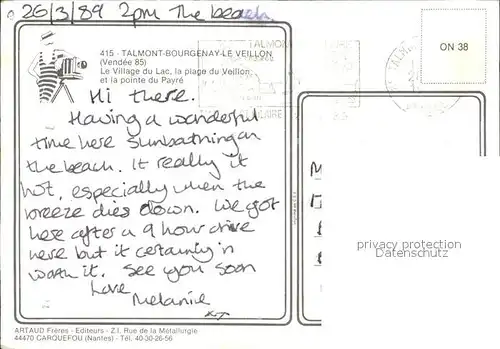 26/3/89 2pm The beach.
415 - TALMONT-BOURGENAY-LE VEILLON
(Vendée 85)
Le Village du Lac, la plage du Veillon
et la pointe du Payré
ON 38
TALMONT
Hi there.
Having a wonderful
time here sunbathing on
the beach. It really it
hot, especially when the
breeze dies down. We got
here after a 9 hour drive
here but it certainly in
worth it. See you soon
Love
Melanie
privacy protection
Datenschutz
ARTAUD Frères - Editeurs - Z.I. Rue de la Métallurgie
44470 CARQUEFOU (Nantes) - Tél. 40-30-26-56